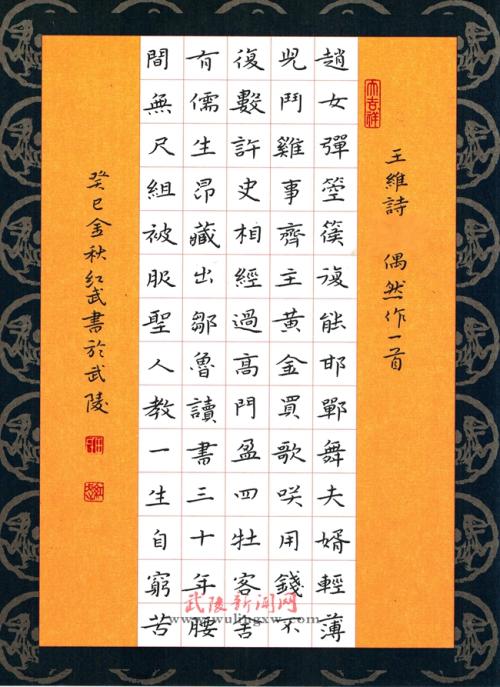 大吉祥
王維詩 偶然作一首
趙女彈箜篌復能邯鄲舞夫婿輕薄
兒鬥雞事齊主黃金買歌咲用錢不
復數許史相經過高門盈四牡客舍
有儒生昂藏出鄒魯讀書三十年腰
間無尺組被服聖人教一生自窮苦
癸巳金秋紅武書於武陵
武陵新闻网
www.wulingxw.com